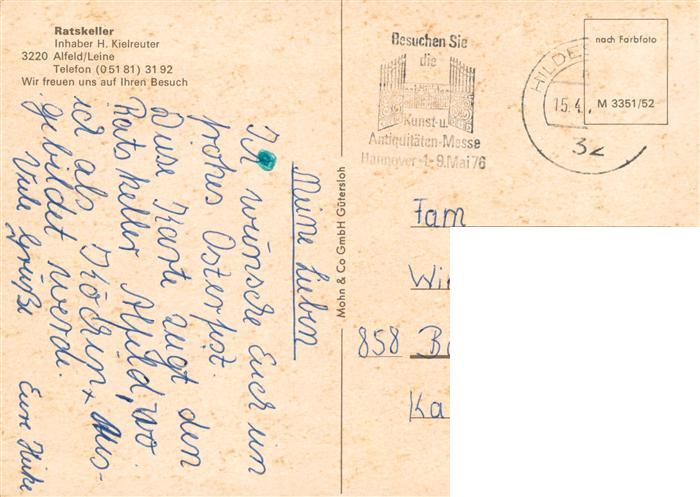 Ratskeller
Inhaber H. Kielreuter
3220 Alfeld/Leine
Telefon (0 51 81) 31 92
Wir freuen uns auf Ihren Besuch
Meine Lieben
Ich wünsche Euch ein
frohes Osterfest.
Diese Karte zeigt den
Ratskeller Alfeld, wo
ich als Köchin
gebildet werde.
Viele Grüße
Eure Heike
Mohn & Co GmbH Gütersloh
Besuchen Sie
die
Kunst-u.
Antiquitäten-Messe
Hannover 1.-9. Mai 76
15.4.
32
nach Farbfoto
M 3351/52
Fam
858
Ka